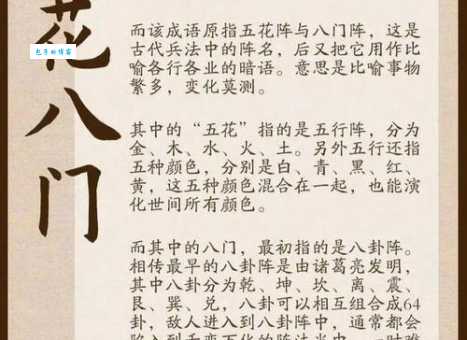 花八门
而该成语原指五花阵与八门阵，这是
古代兵法中的阵名，后又把它用作比
喻各行各业的暗语。意思是比喻事物
繁多，变化莫测。
其中的“五花”指的是五行阵，分为
金、木、水、火、土。另外五行还指
五种颜色，分别是白、青、黑、红、
黄，这五种颜色混合在一起，也能演
化世间所有颜色。
而其中的八门，最初指的是八卦阵。
相传最早的八卦阵是由诸葛亮发明，
其中八卦分为乾、坤、坎、离、震、
艮、巽、兑，八卦可以相互组合成64
卦，敌人进入到八卦阵中，通常都会